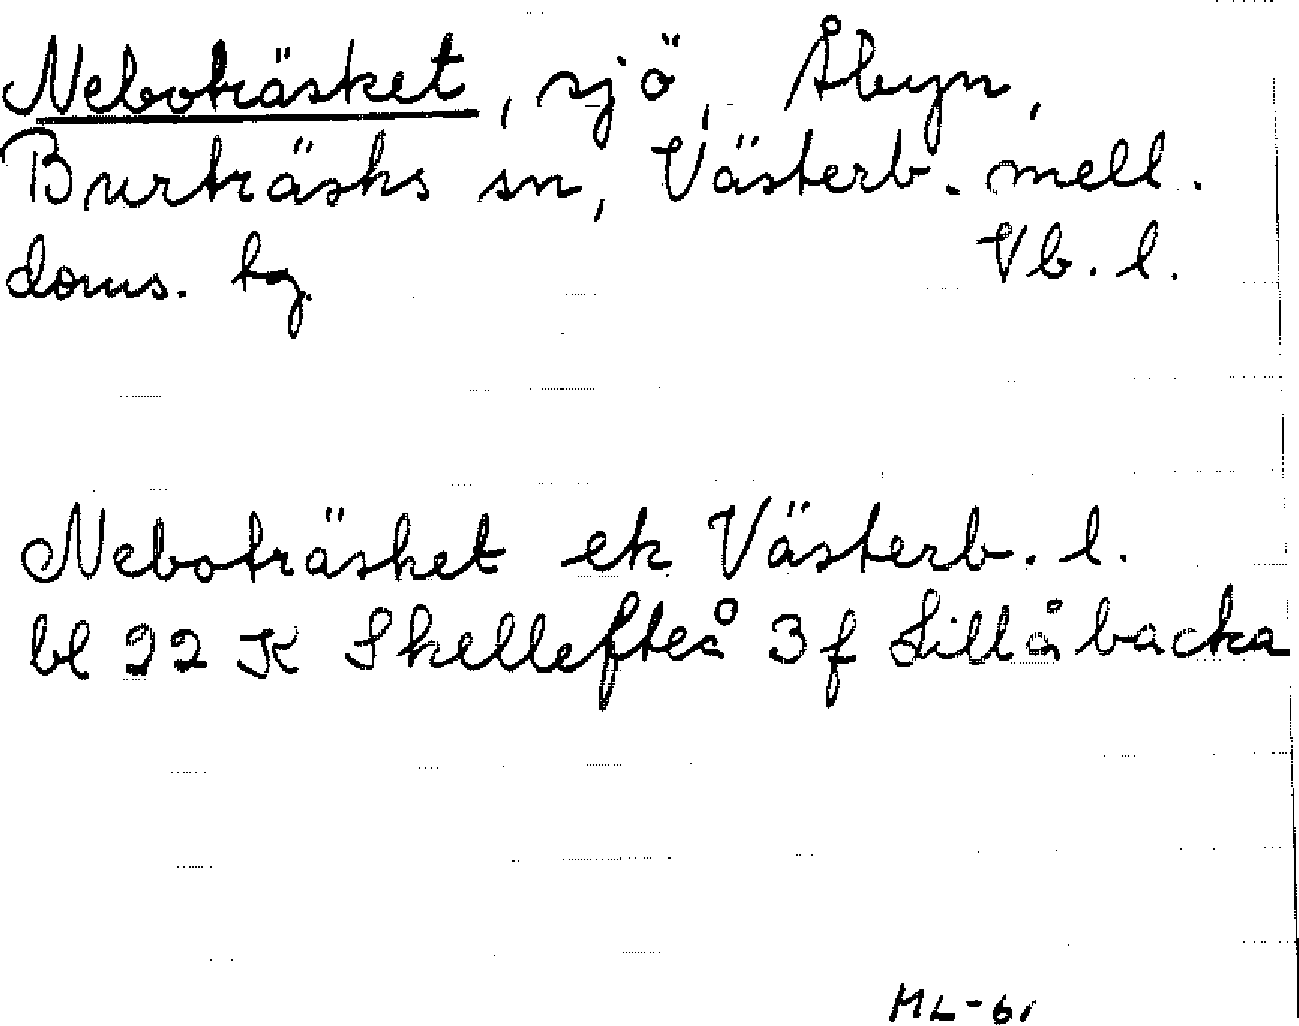 Neboträsket, sjö, Åbyn,
Burträsks sn, Västerb. mell.
doms. tg. Vb. l.
Neboträsket ek Västerb. l.
bl 22 K Skellefteå 3f Lillåbacka
ML-61